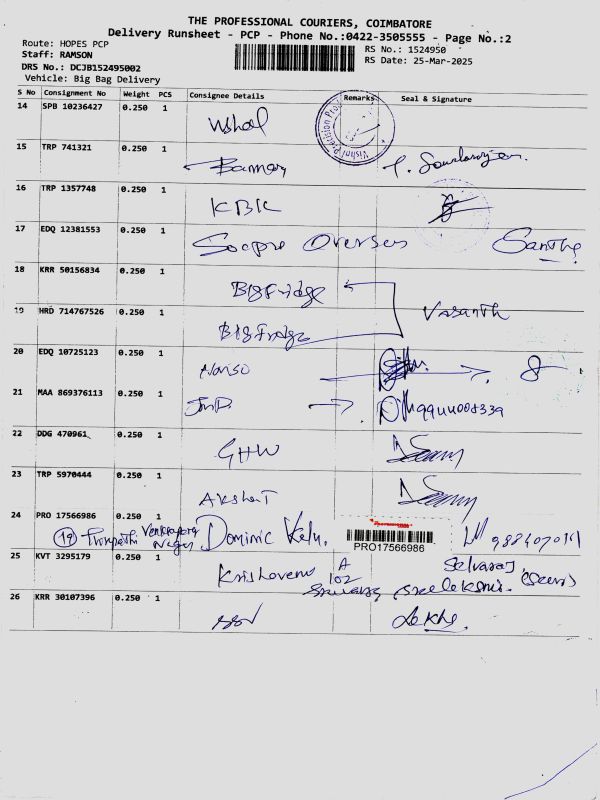 THE PROFESSIONAL COURIERS, COIMBATORE
Delivery Runsheet - PCP - Phone No.:0422-3505555 - Page No.:2
Route: HOPES PCP
RS No.: 1524950
Staff: RAMSON
RS Date: 25-Mar-2025
DRS No.: DCJB152495002
Vehicle: Big Bag Delivery
S No Consignment No Weight PCS Consignee Details Remarks Seal & Signature
14 SPB 10236427 0.250 1 Vishal
15 TRP 741321 0.250 1
16 TRP 1357748 0.250 1 KBK
17 EDQ 12381553 0.250 1 Overses
18 KRR 50156834 0.250 1 Big Fridge
Vasanth
19 HRD 714767526 0.250 1 Big Fridge
20 EDQ 10725123 0.250 1 8
21 MAA 869376113 0.250 1
22 DDG 470961 0.250 1 GHW
23 TRP 5970444 0.250 1 Akshat
24 PRO 17566986 0.250 1 Dominic
19
PRO17566986
25 KVT 3295179 0.250 1 A 102 Selvaraj
26 KRR 30107396 0.250 1